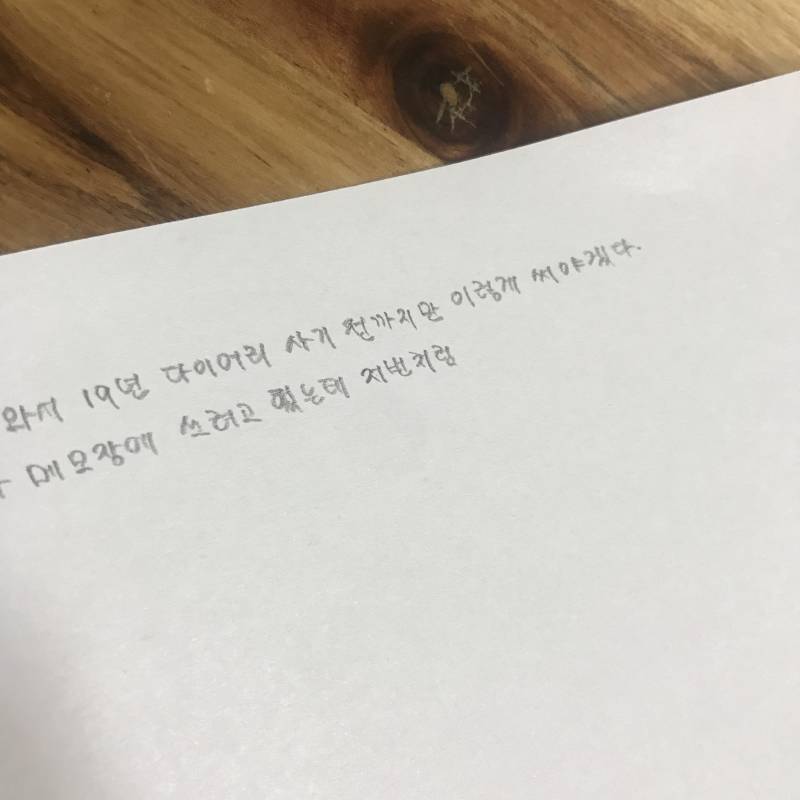 와서 19년 다이어리 사기 전까지만 이렇게 써야겠다.
메모장에 쓰려고 했는데 저번처럼